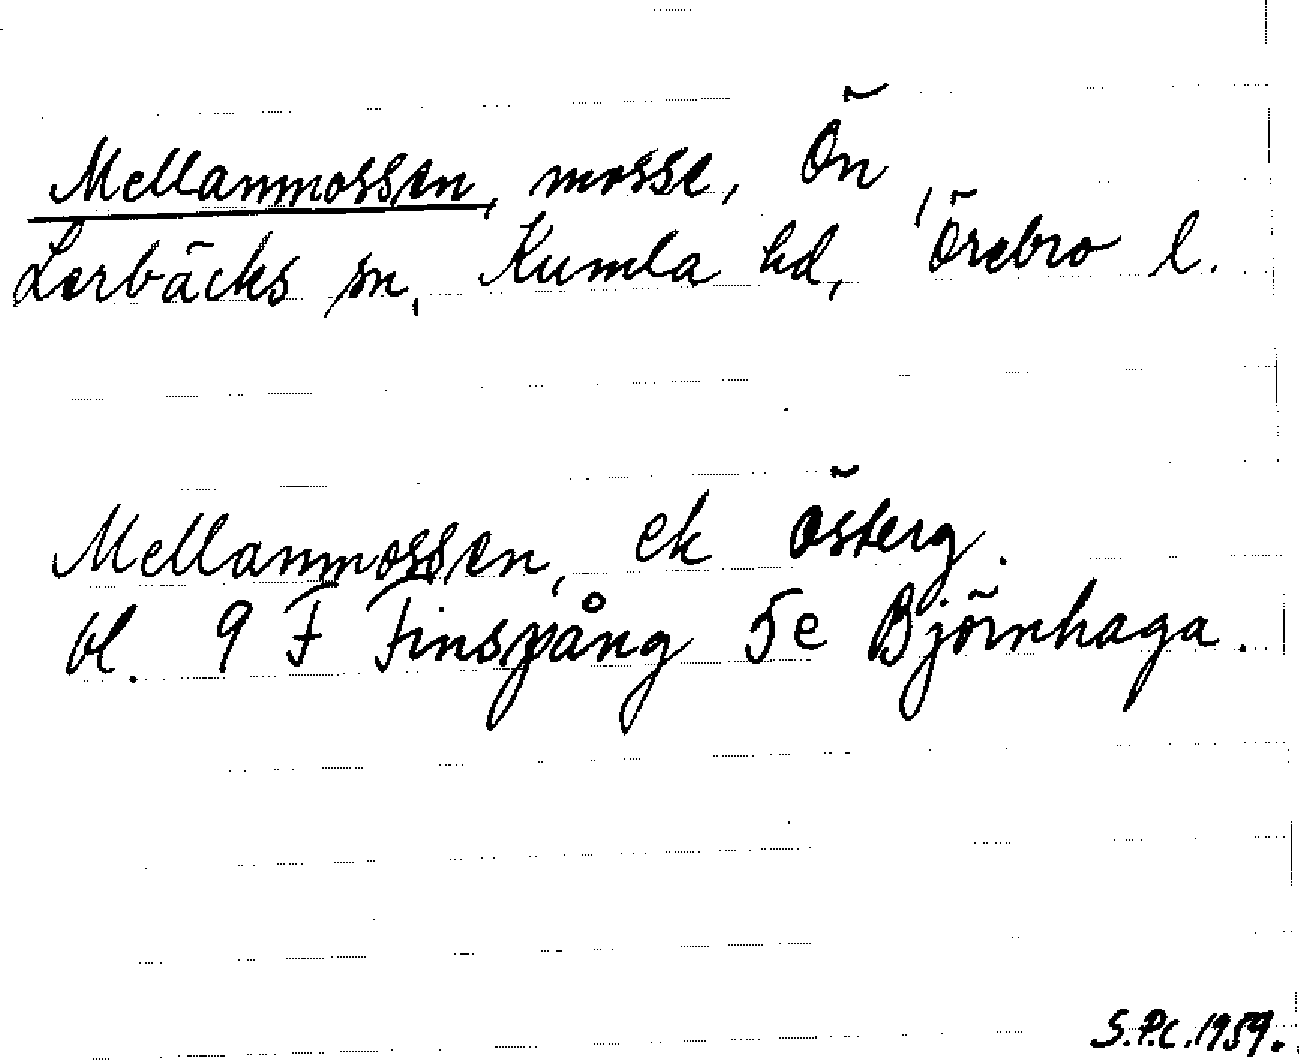 Mellanmossen, mosse, Ön,
Lerbäcks sn, Kumla hd, Örebro l.
Mellanmossen, ek Österg.
bl. 9 F Finspång 5e Björnhaga.
S.P.C. 1959.